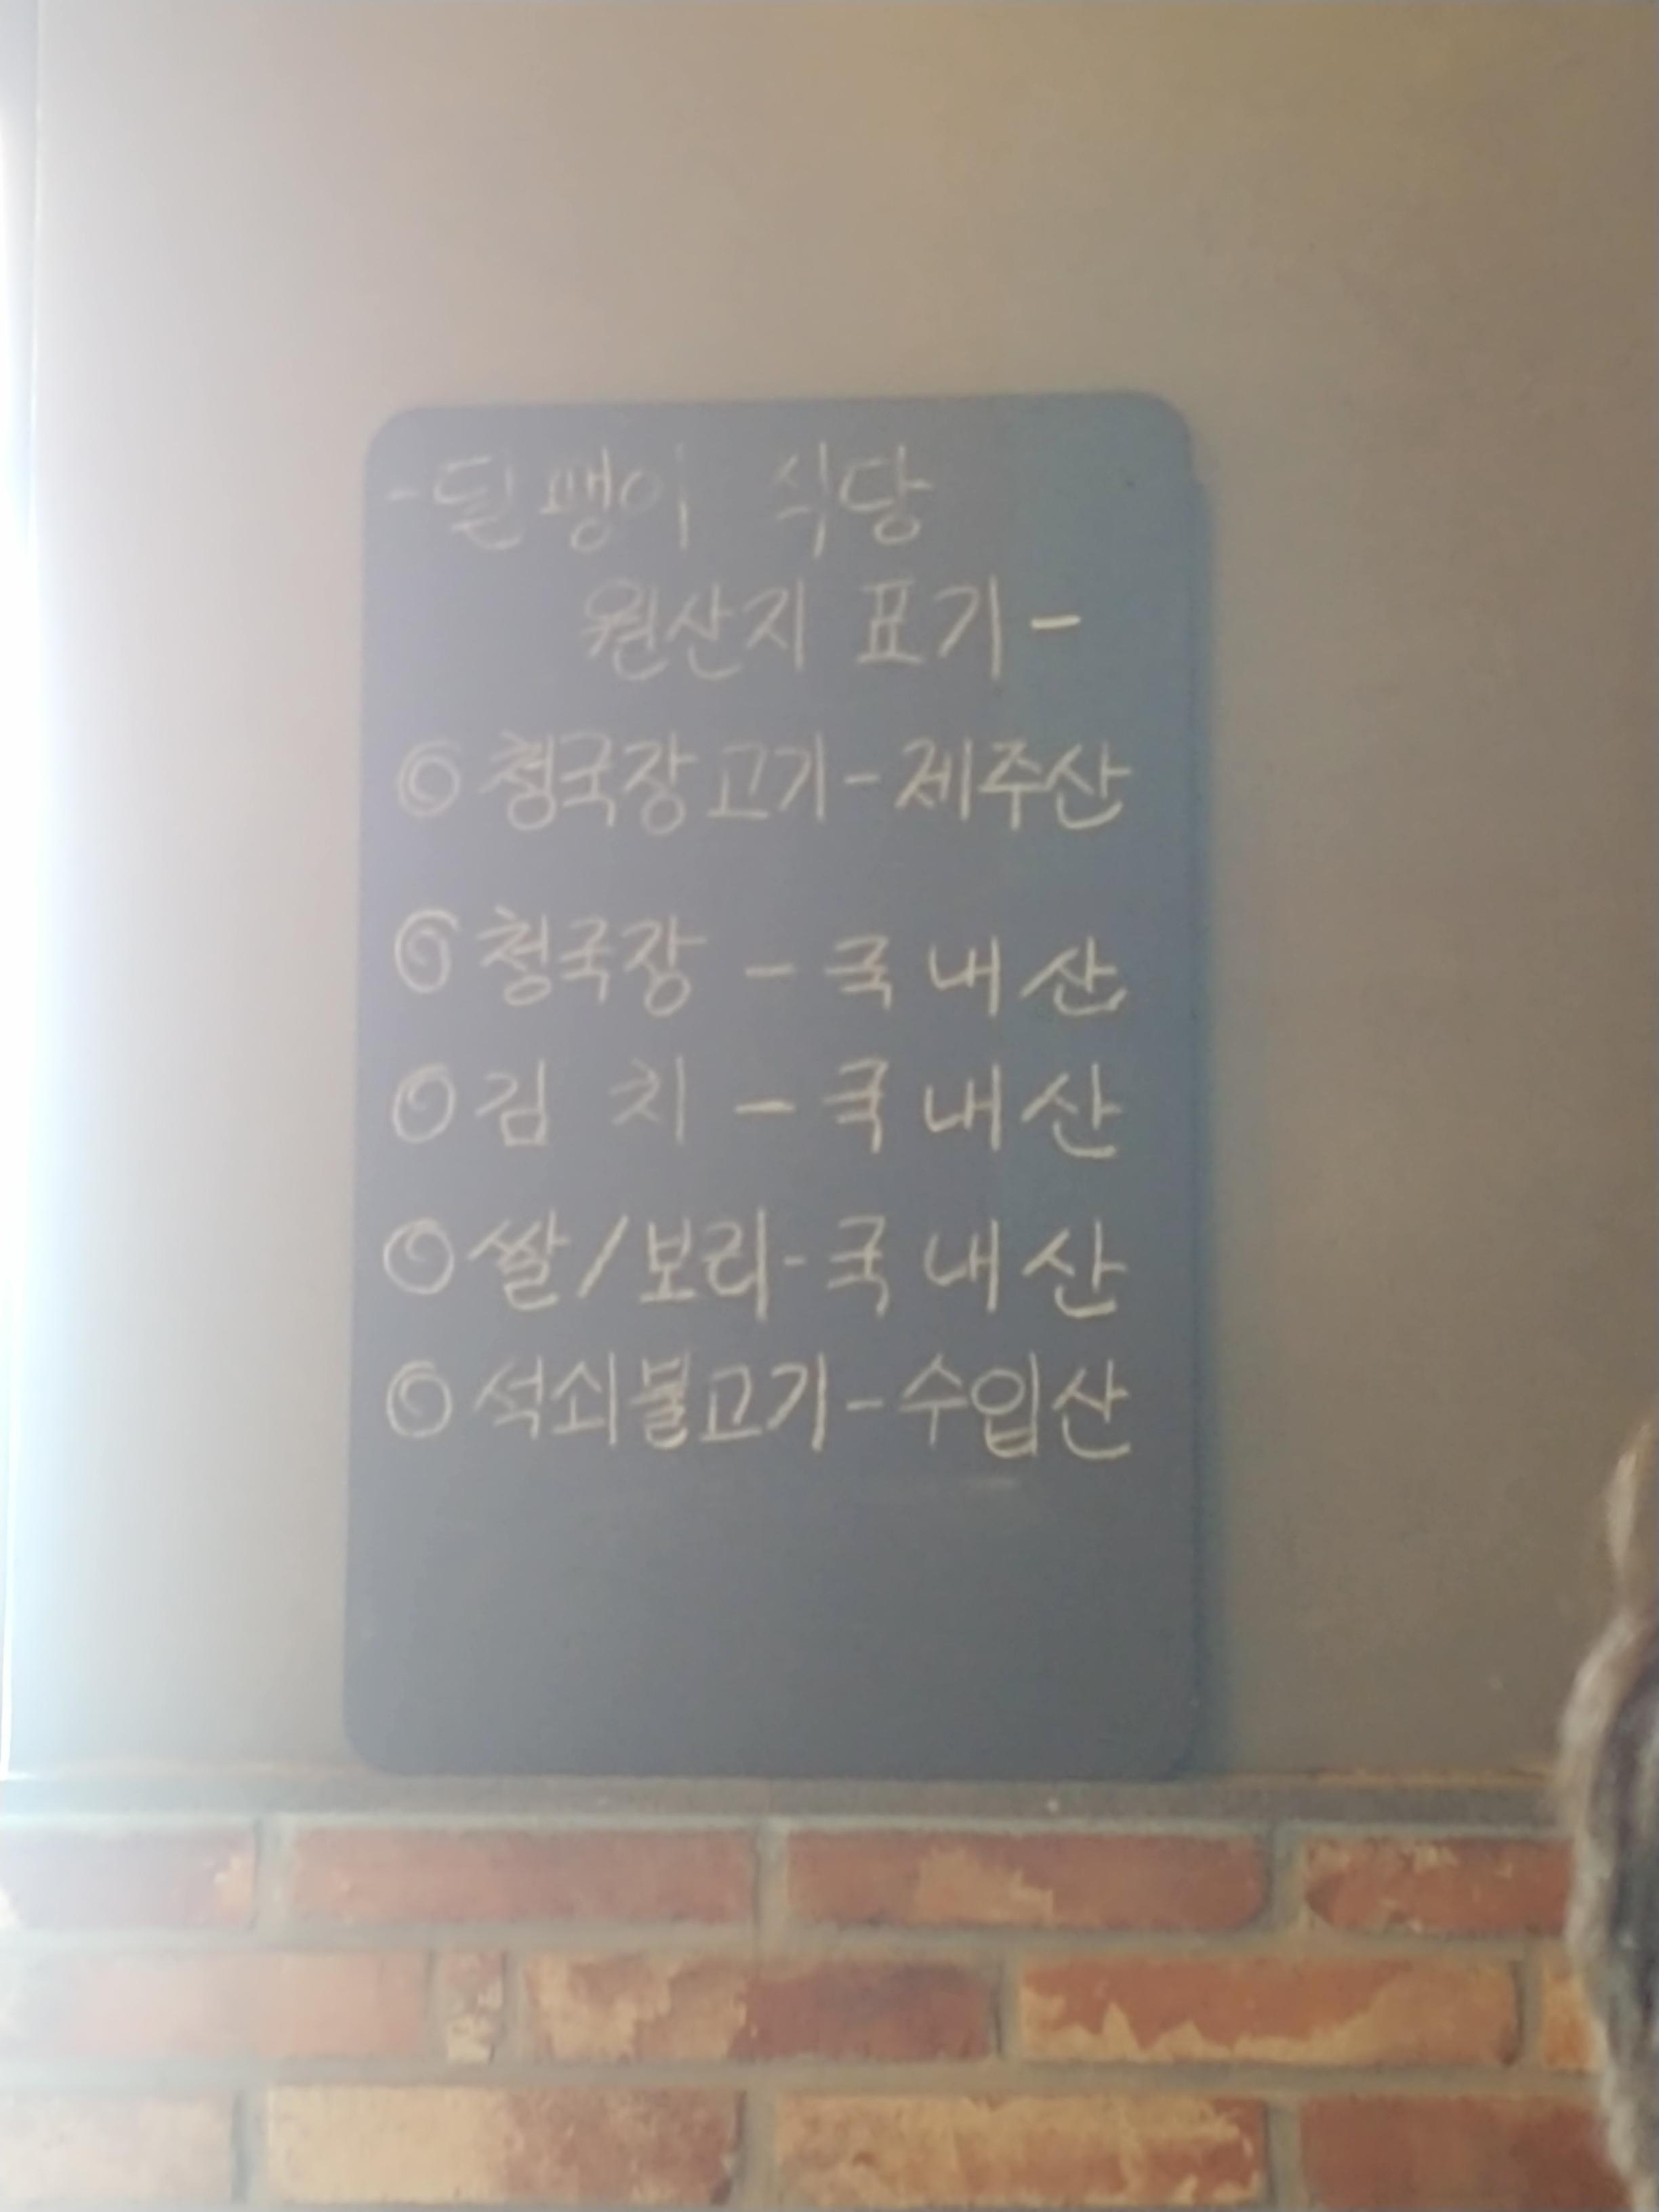 -달팽이 식당
원산지 표기-
◎청국장고기-제주산
◎청국장-국내산
◎김치-국내산
◎쌀/보리-국내산
◎석쇠불고기-수입산